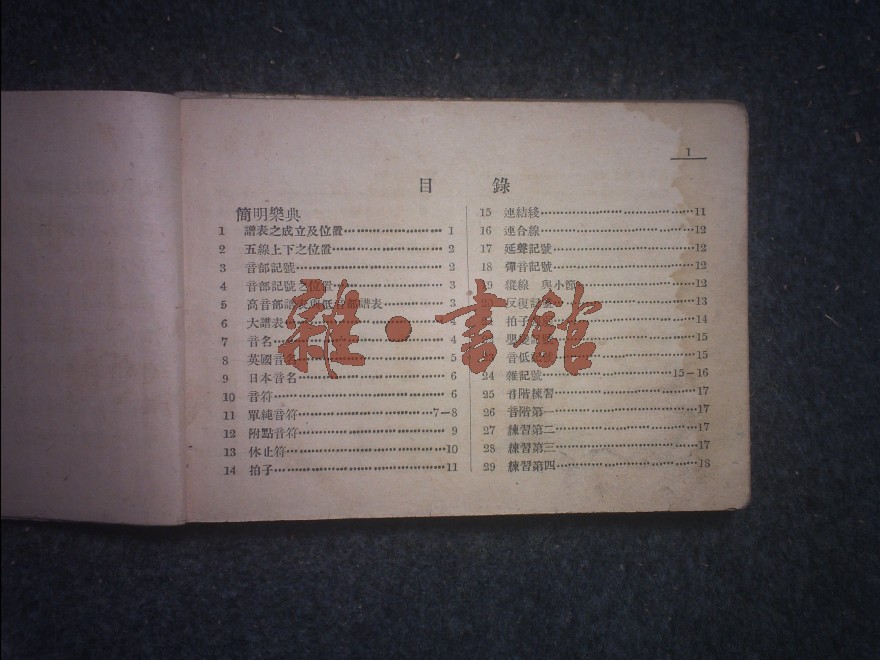 1
目錄
簡明樂典
1 譜表之成立及位置 1
2 五線上下之位置 2
3 音部記號 2
4 音部記號之位置 3
5 高音部譜表與低音部譜表 3
6 大譜表 4
7 音名 4
8 英國音名 5
9 日本音名 6
10 音符 6
11 單純音符 7—8
12 附點音符 9
13 休止符 10
14 拍子 11
15 連結綫 11
16 連合線 12
17 延聲記號 12
18 彈音記號 12
19 縱線 與小節 12
反復記 13
拍子 14
15
音低記號 15
24 雜記號 15—16
25 音階練習 17
26 音階第一 17
27 練習第二 17
28 練習第三 17
29 練習第四 18
雜·書館